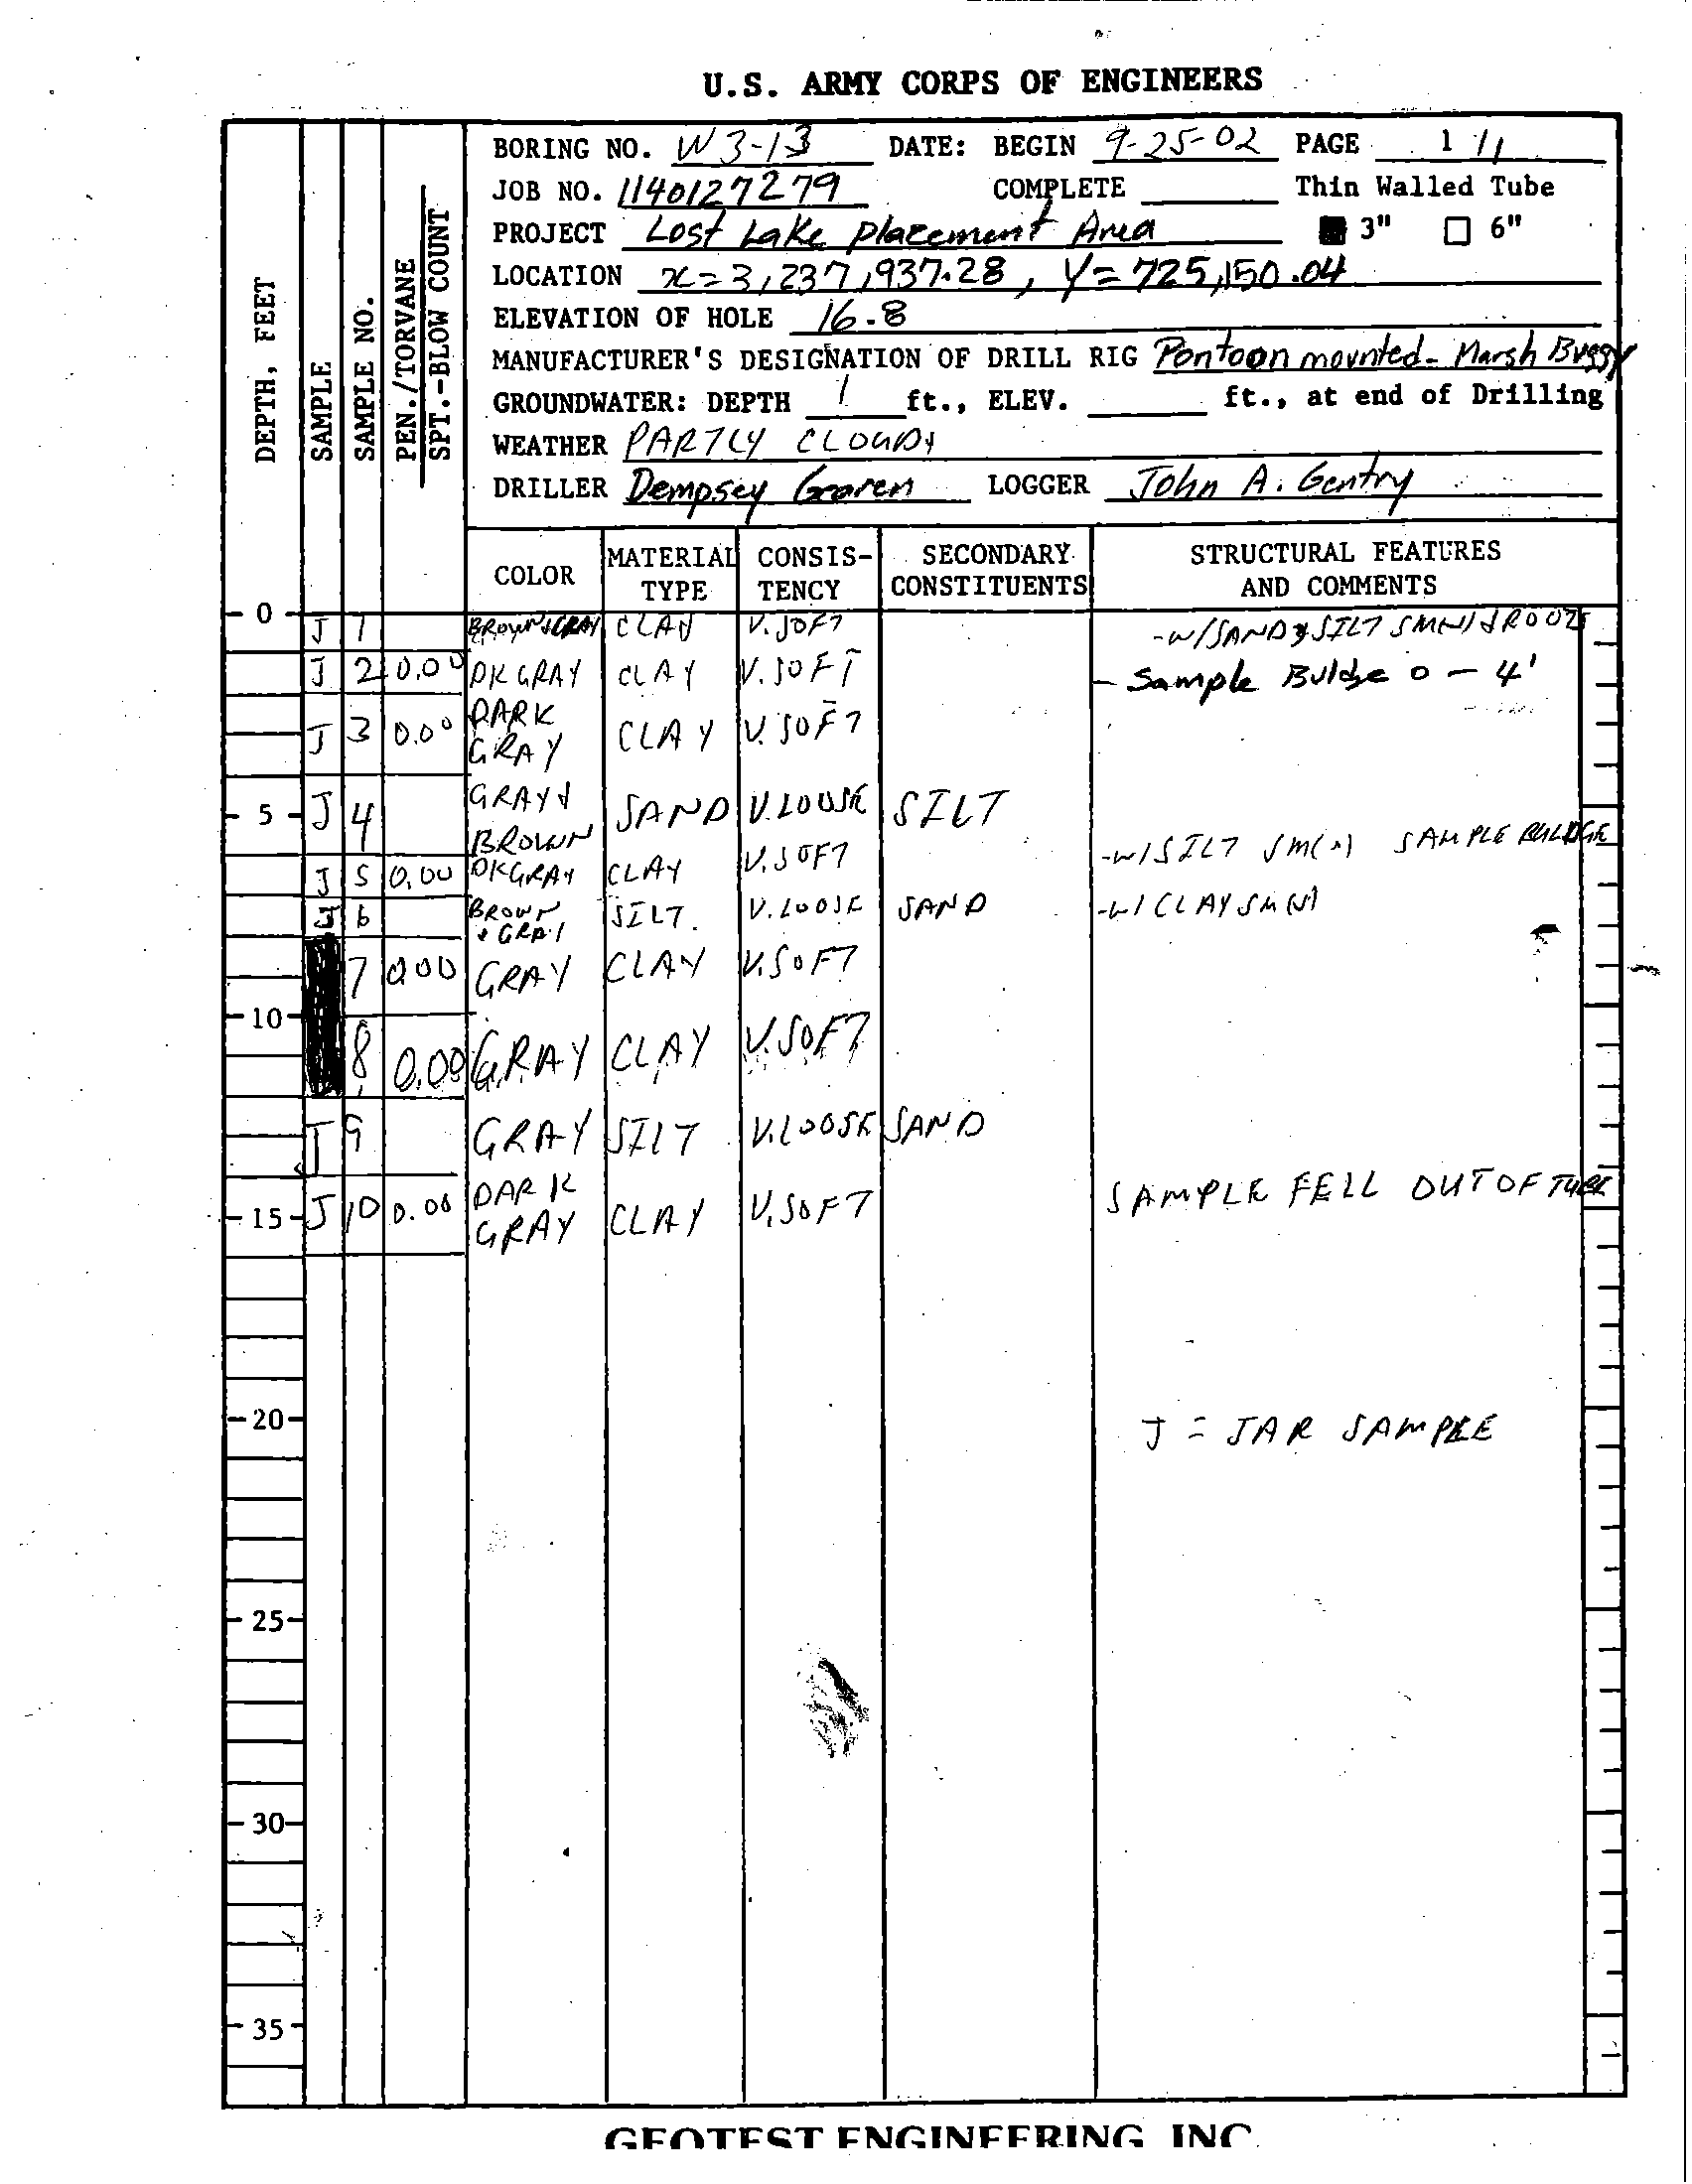 U.S. ARMY CORPS OF ENGINEERS
BORING NO. W3-13 DATE: BEGIN 9-25-02 PAGE 1/1
JOB NO. 1140127279 COMPLETE Thin Walled Tube
PROJECT Lost Lake Placement Area 3" 6"
LOCATION x=3,237,937.28, Y=725,150.04
ELEVATION OF HOLE 16.8
MANUFACTURER'S DESIGNATION OF DRILL RIG Pontoon mounted- Marsh Buggy
GROUNDWATER: DEPTH 1 ft., ELEV. ft., at end of Drilling
WEATHER PARTLY CLOUDY
DRILLER Dempsey LOGGER John A. Gentry
DEPTH, FEET
SAMPLE
SAMPLE NO.
PEN./TORVANE
SPT.-BLOW COUNT
COLOR MATERIAL TYPE CONSIS-TENCY SECONDARY CONSTITUENTS STRUCTURAL FEATURES AND COMMENTS
0
J 1 BROWN & GRAY CLAY V. SOFT -W/SAND & SILT SM(N) & ROOTS
J 2 0.00 DK GRAY CLAY V. SOFT - Sample Buldge 0 - 4'
J 3 0.00 DARK GRAY CLAY V. SOFT
5 J 4 GRAY & BROWN SAND V LOOSE SILT
J 5 0.00 DK GRAY CLAY V. SOFT -W/SILT SM(N) SAMPLE BULDGE
J 6 BROWN & GRAY SILT. V. LOOSE SAND -W/CLAY SM(N)
7 0.00 GRAY CLAY V. SOFT
10
8 0.00 GRAY CLAY V. SOFT
J 9 GRAY SILT V. LOOSE SAND
15 J 10 0.00 DARK GRAY CLAY V. SOFT SAMPLE FELL OUT OF TUBE
20 J = JAR SAMPLE
25
30
35
GEOTEST ENGINEERING INC.